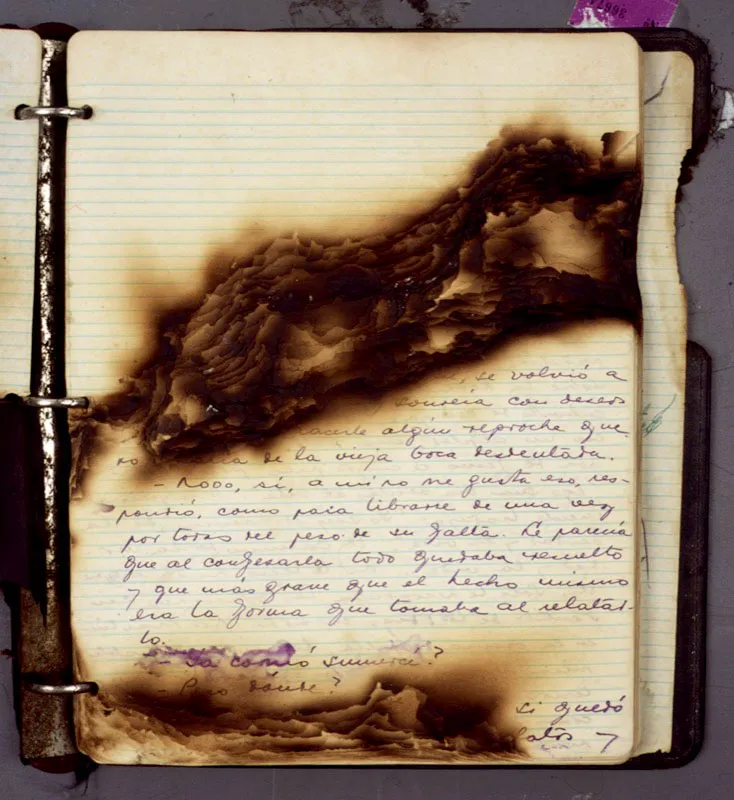 se volvió a
sonreía con deseos
hacerle algún reproche que
no de la vieja boca desdentada.
- Nooo, si, a mi no me gusta eso, res-
pondió, como para librarse de una vez
por todas del peso de su falta. Le parecía
que al confesarla todo quedaba resuelto
y que más grave que el hecho mismo
era la forma que tomaba al relatar-
lo.
- Ya comió sumercé?
- Pero dónde?
si quedó
latos y